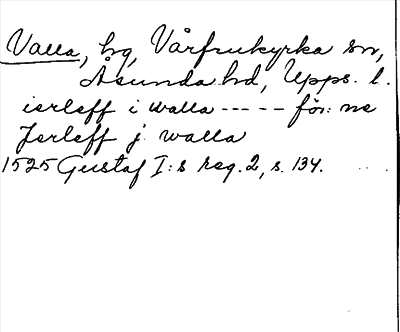 Valla, by, Vårfrukyrka sn,
Åsunda hd, Upps. l.
ierleff i walla ----- för: ne
Jerleff j walla
1525 Gustaf I:s reg. 2, s. 134.